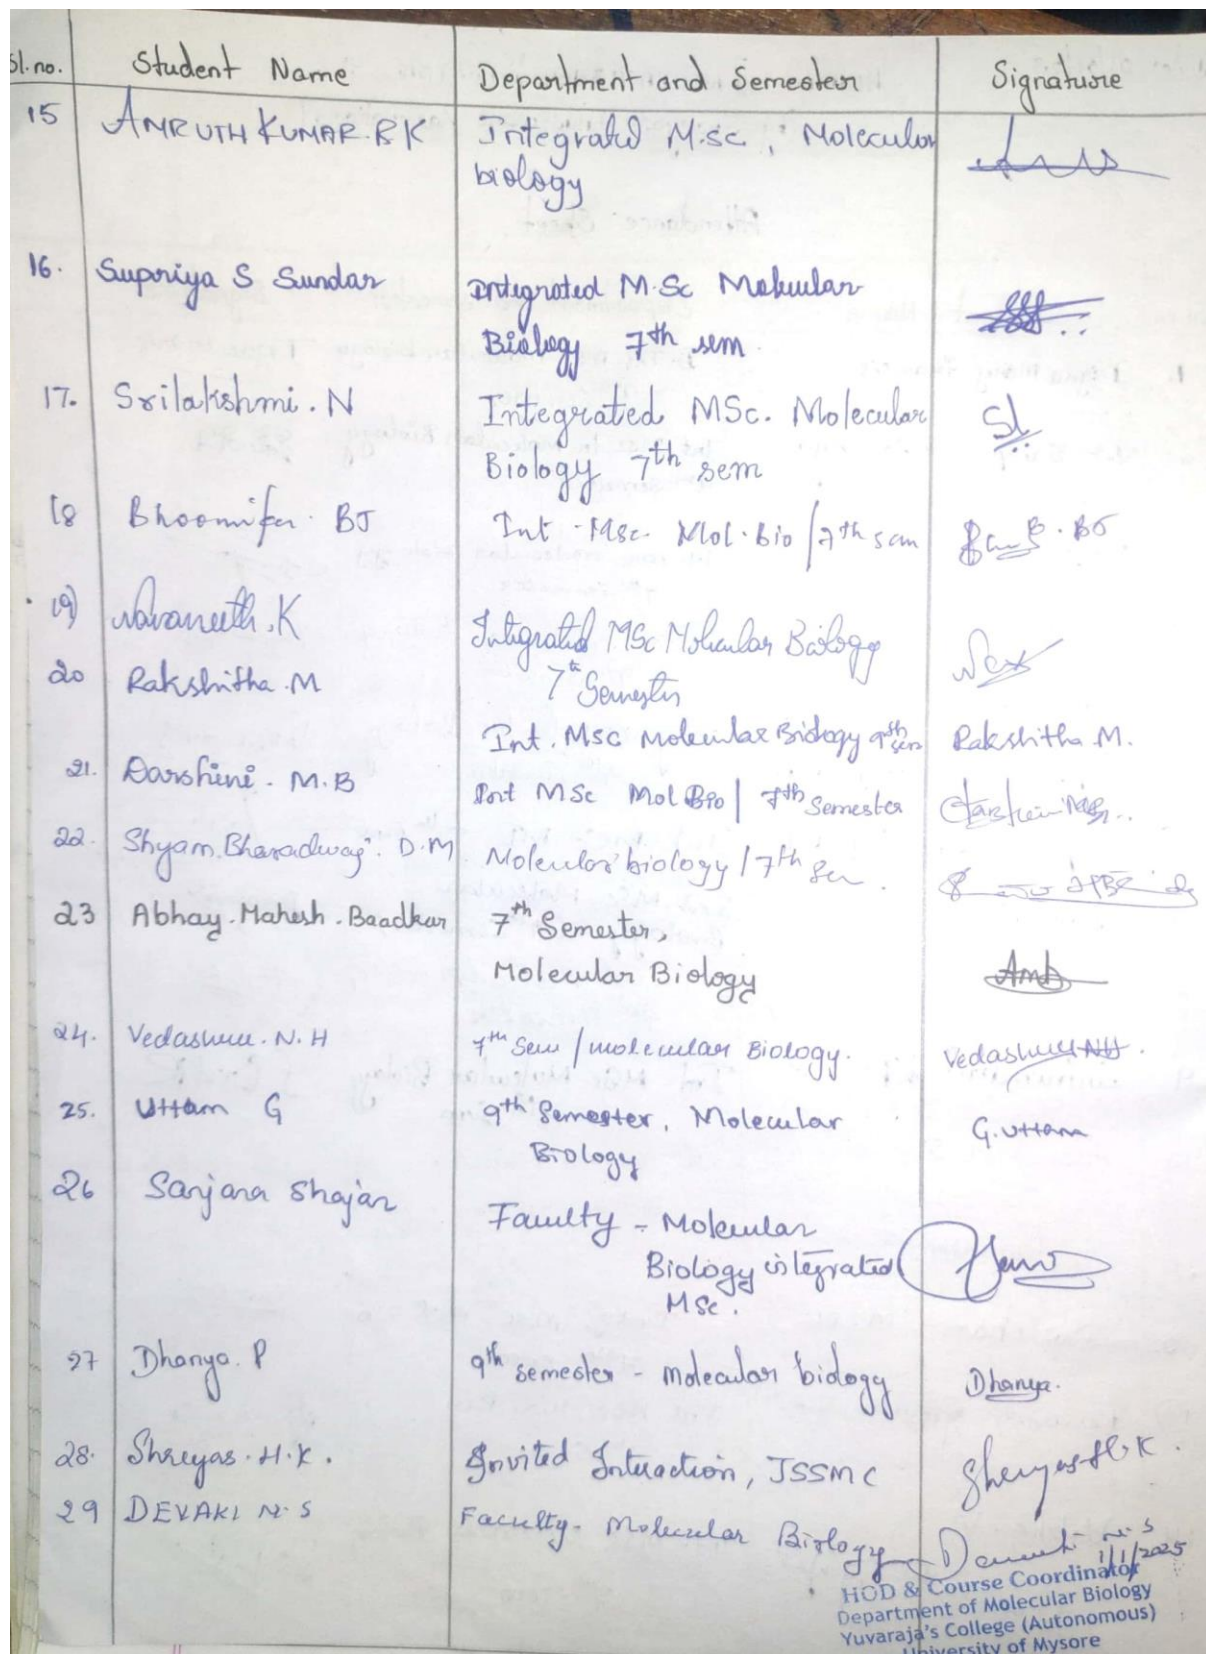 Sl. no. Student Name Department and Semester Signature
15 AMRUTH KUMAR. R K Integrated M.sc, Molecular
biology
16. Supriya S Sundar Integrated M.Sc Molecular
Biology 7th sem.
17. Srilakshmi. N Integrated MSc. Molecular Sl
Biology 7th sem
18 Bhoomika. BJ Int - MSc. Mol. Bio / 7th sem
19) Navaneeth. K Integrated MSc Molecular Biology
7th Semester
20 Rakshitha. M
Int. MSc Molecular Biology 9th sem Rakshitha. M.
21. Darshini. M.B Int MSc Mol Bio / 7th Semester
22. Shyam Bharadwaj. D.M Molecular biology / 7th Sem.
23 Abhay. Mahesh. Baadkar 7th Semester,
Molecular Biology Amb
24. Vedashree. N. H 7th Sem / molecular Biology. Vedashree NH
25. Uttam G 9th Semester, Molecular G. Uttam
Biology
26 Sanjana Shajan Faculty - Molecular
Biology integrated
MSc.
27 Dhanya. P 9th semester - molecular biology Dhanya.
28. Shreyas. H. K. Invited Interaction, JSSMC Shreyas H. K.
29 DEVAKI N. S Faculty - Molecular Biology Devaki N. S
1/1/2025
HOD & Course Coordinator
Department of Molecular Biology
Yuvaraja's College (Autonomous)
University of Mysore